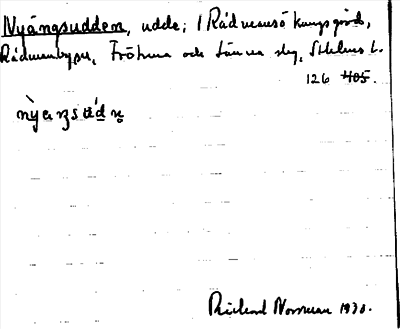 Nyängsudden, udde; 1 Rådmansö kungsgård,
Rådmanbysn, Frötuna och Länna slg, Sthlms l.
126 405.
nỳaŋsúdn̥
Rickard Norman 1930.